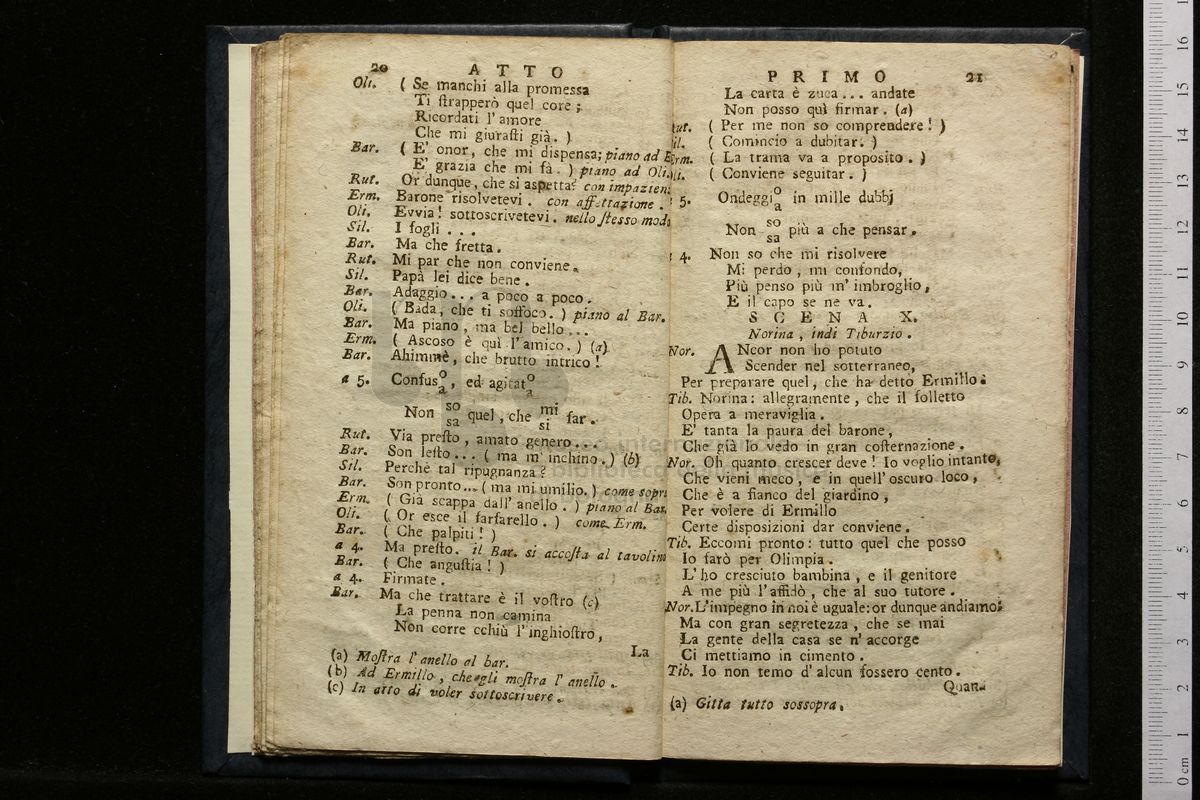 20 ATTO
Oli. ( Se manchi alla promessa
Ti ſtrapperò quel core ;
Ricordati l' amore
Che mi giuraſti già. )
Bar. ( E' onor, che mi dispensa; piano ad E
E' grazia che mi fà. ) piano ad Oli.
Rut. Or dunque, che si aspetta? con impazien
Erm. Barone risolvetevi . con affettazione .
Oli. Evvia! sottoscrivetevi. nello ſtesso modo
Sil. I fogli . . .
Bar. Ma che fretta.
Rut. Mi par che non conviene.
Sil. Papà lei dice bene .
Bar. Adaggio... a poco a poco.
Oli. ( Bada, che ti soffoco. ) piano al Bar.
Bar. Ma piano , ma bel bello ...
Erm. ( Ascoso è quì l' amico. ) (a)
Bar. Ahimmè, che brutto intrico !
a 5. Confus o a , ed agitat o a
Non so sa quel, che mi si far .
Rut. Via preſto , amato genero...
Bar. Son leſto ... ( ma m' inchino. ) (b)
Sil. Perchè tal ripugnanza ?
Bar. Son pronto... ( ma mi umilio. ) come sopr
Erm. ( Già scappa dall' anello . ) piano al Bar.
Oli. ( Or esce il farfarello . ) come Erm.
Bar. ( Che palpiti ! )
a 4. Ma preſto. il Bar. si accoſta al tavolin
Bar. ( Che anguſtia ! )
a 4. Firmate .
Bar. Ma che trattare è il voſtro (c)
La penna non camina
Non corre cchiù l' inghioſtro ,
La
(a) Moſtra l' anello al bar.
(b) Ad Ermillo , che gli moſtra l' anello .
(c) In atto di voler sottoscrivere .
PRIMO 21
La carta è zuca ... andate
Non posso quì firmar . (a)
Rut. ( Per me non so comprendere! )
Sil. ( Comincio a dubitar. )
Erm. ( La trama va a proposito . )
Oli. ( Conviene seguitar. )
5. Ondeggi o a in mille dubbj
Non so sa più a che pensar.
4. Non so che mi risolvere
Mi perdo , mi confondo,
Più penso più m' imbroglio,
E il capo se ne va.
SCENA X.
Norina , indi Tiburzio .
Nor. ANcor non ho potuto
Scender nel sotterraneo,
Per preparare quel, che ha detto Ermillo:
Tib. Norina: allegramente, che il folletto
Opera a meraviglia .
E' tanta la paura del barone,
Che già lo vedo in gran coſternazione .
Nor. Oh quanto crescer deve ! Io voglio intanto,
Che vieni meco, e in quell' oscuro loco,
Che è a fianco del giardino ,
Per volere di Ermillo
Certe disposizioni dar conviene.
Tib. Eccomi pronto: tutto quel che posso
Io farò per Olimpia .
L' ho cresciuto bambina , e il genitore
A me più l' affidò , che al suo tutore .
Nor. L' impegno in noi è uguale: or dunque andiamo:
Ma con gran segretezza , che se mai
La gente della casa se n' accorge
Ci mettiamo in cimento .
Tib. Io non temo d' alcun fossero cento.
Quan-
(a) Gitta tutto sossopra.